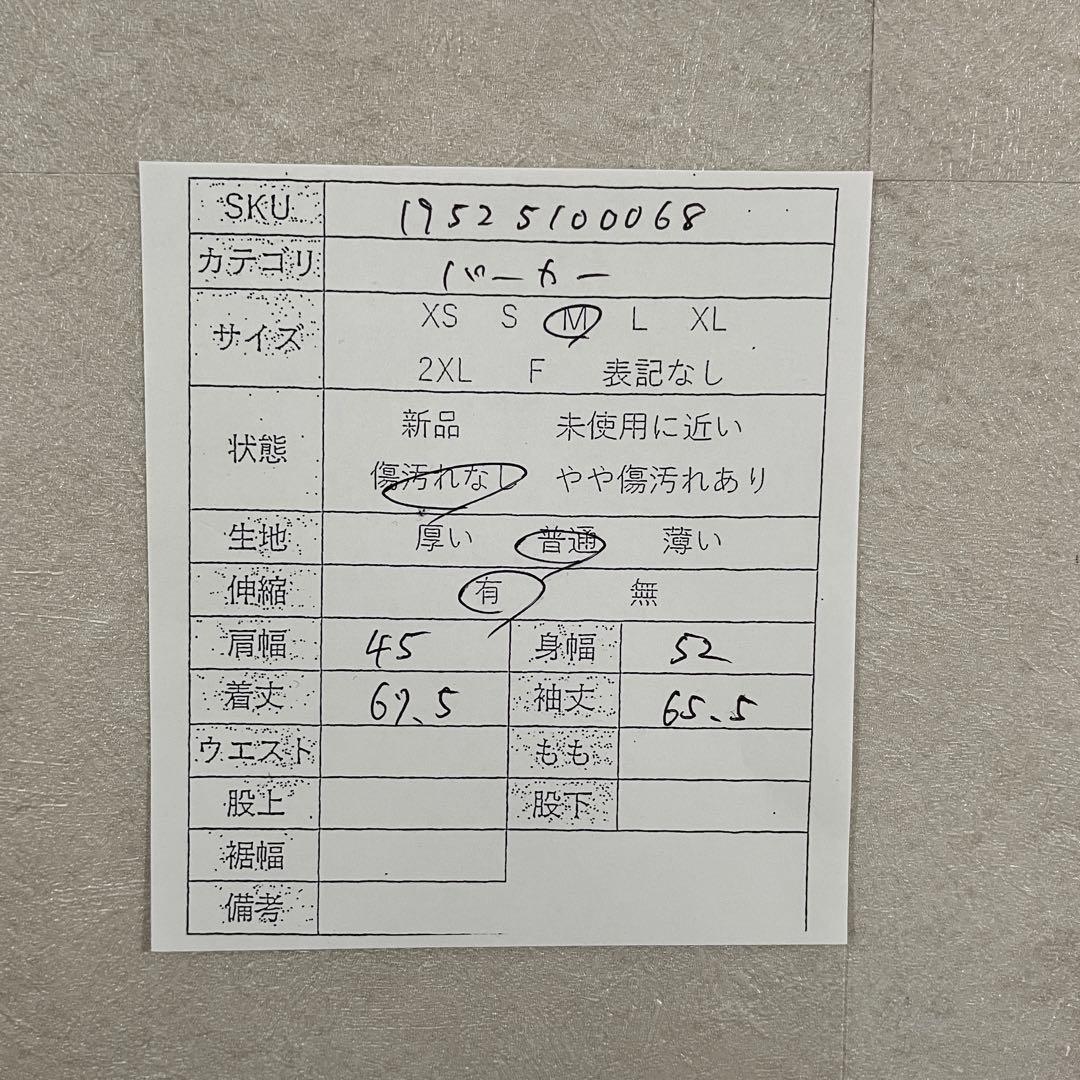 SKU 19525100068
カテゴリ パーカー
サイズ XS S M L XL
2XL F 表記なし
状態 新品 未使用に近い
傷汚れなし やや傷汚れあり
生地 厚い 普通 薄い
伸縮 有 無
肩幅 45 身幅 52
着丈 67.5 袖丈 65.5
ウエスト もも
股上 股下
裾幅
備考